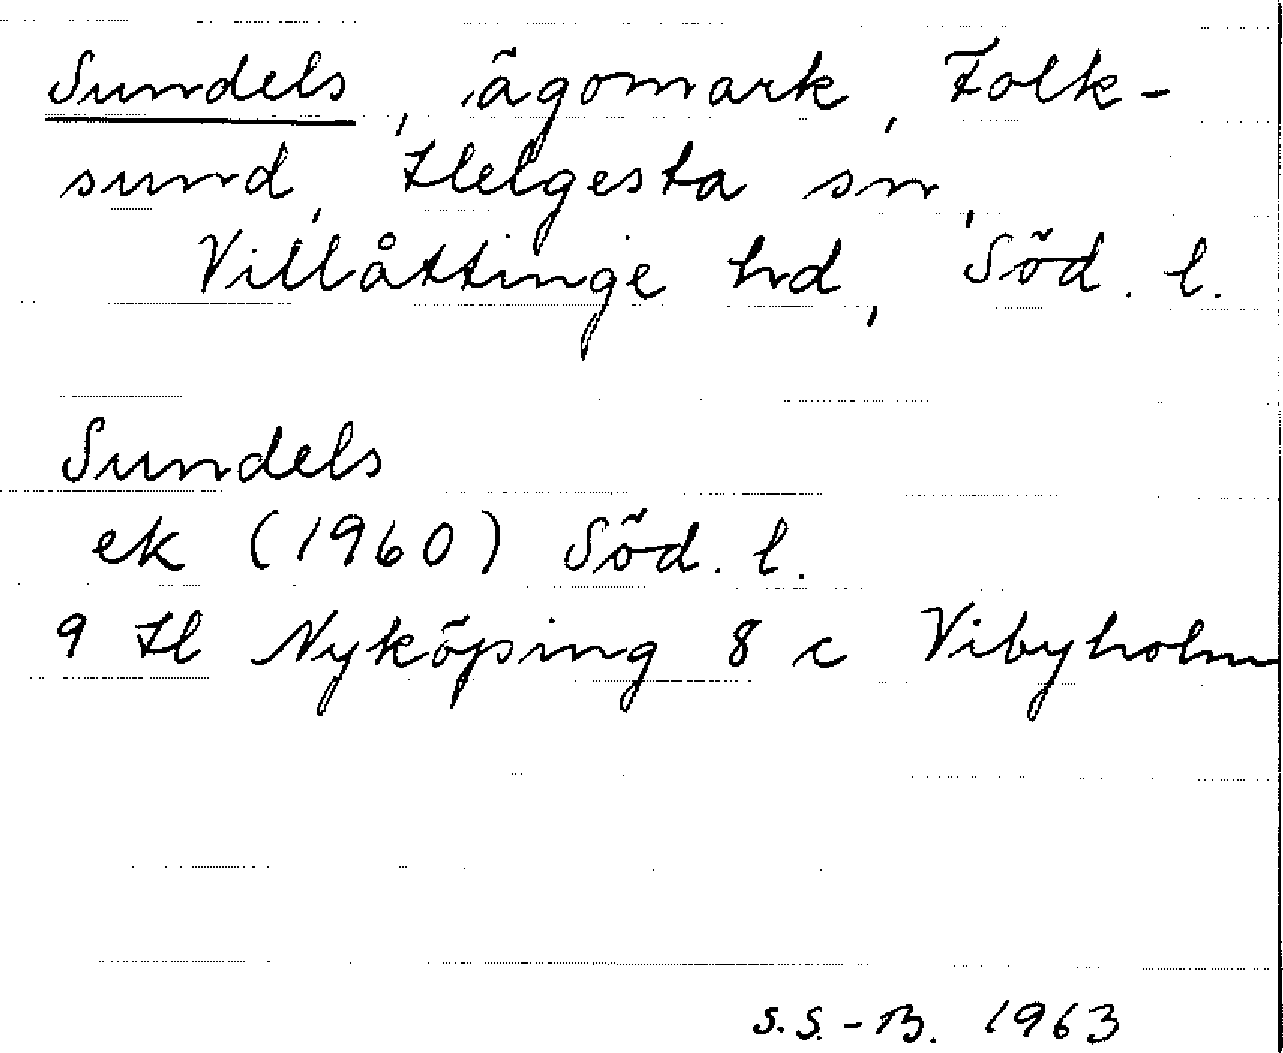 Sundels, ägomark, Folk-
sund, Helgesta sn,
Villåttinge hd, Söd. l.
Sundels
ek (1960) Söd. l.
9 H Nyköping 8 c Vibyholm
S.S.-B. 1963